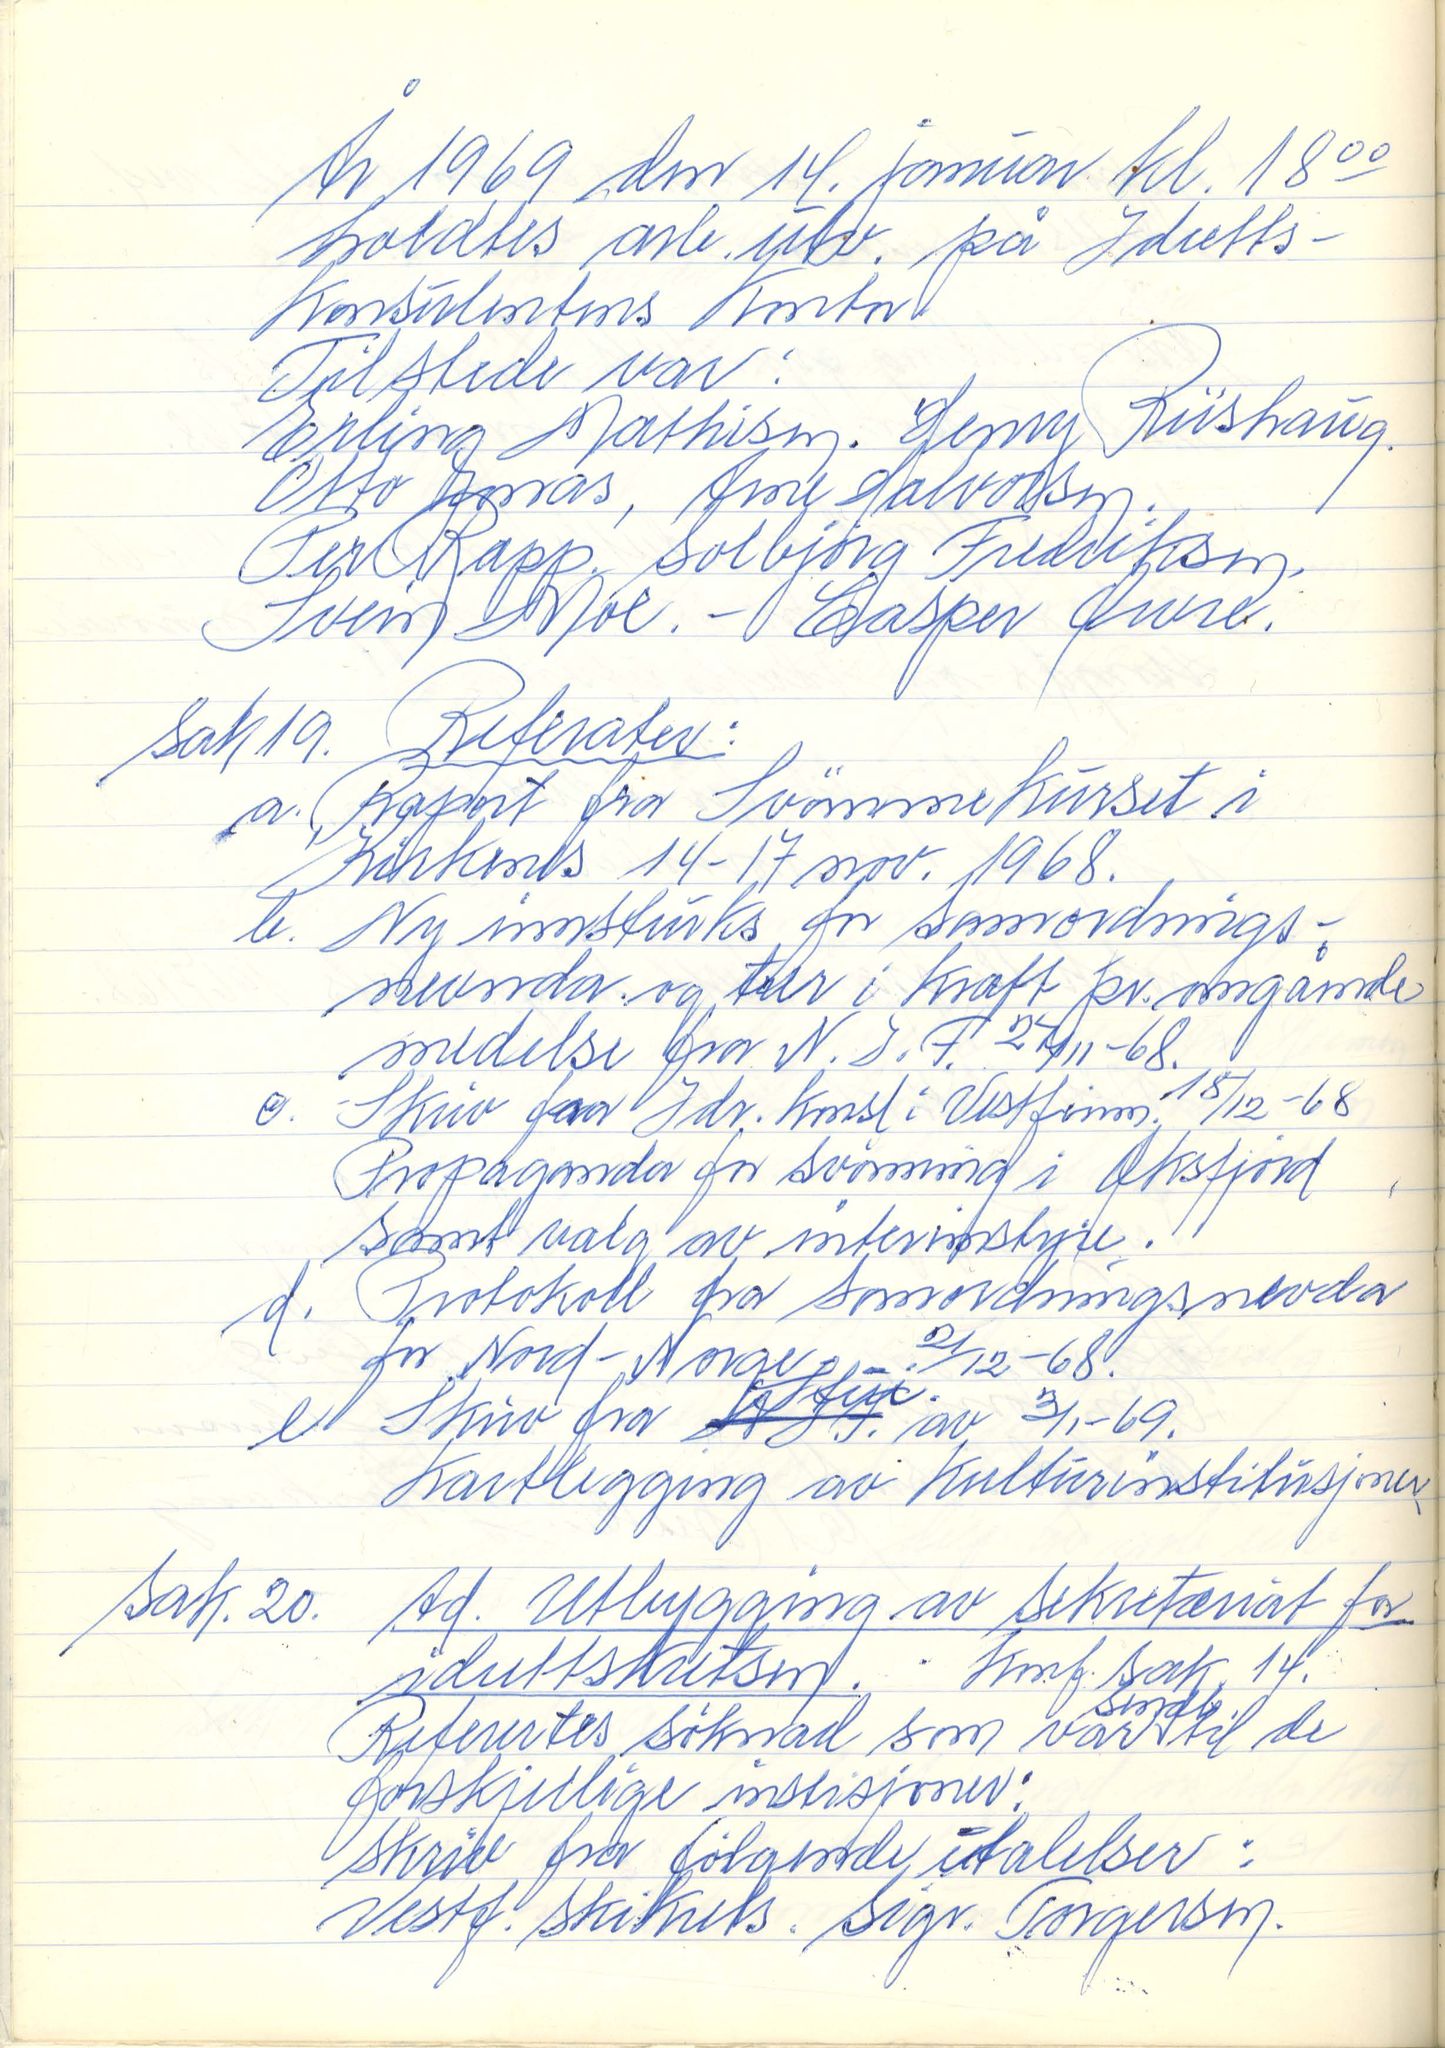 År 1969 den 14. januar kl. 18⁰⁰
holdtes arb. utv. på Idretts-
konsulentens kontor
Tilstede var:
Erling Mathisen. Henry Riishaug.
Otto Jomas, Arne Halvorsen.
Per Rapp. Solbjørg Fredriksen.
Svein Moe. – Casper Juvre.
Sak 19. Referater:
a. Raport fra Svömmekurset i
Kirkenes 14-17 nov. 1968.
b. Ny innstuks for samordnings-
nevnda og trer i kraft pr. omgående
medelse fra N. I. F. 27/11-68.
c. Skriv fra Idr. kons. i Vestfinn. 18/12-68
Propaganda for svömming i Øksfjord
samt valg av interimstyre.
d. Protokoll fra Samordningsnevda
for Nord-Norge. 2/12-68.
e Skriv fra av 3/1-69.
Kartlegging av Kulturinstitusjoner
Sak. 20. Ad. Utbygging av sekretæriat for
idrettskretsen. Konf. sak 14.
Referertes söknad som var sendt til de
forskjellige instisjoner:
skriv fra følgende, utalelser:
Vestf. skikrets. Sigr. Torgersen.